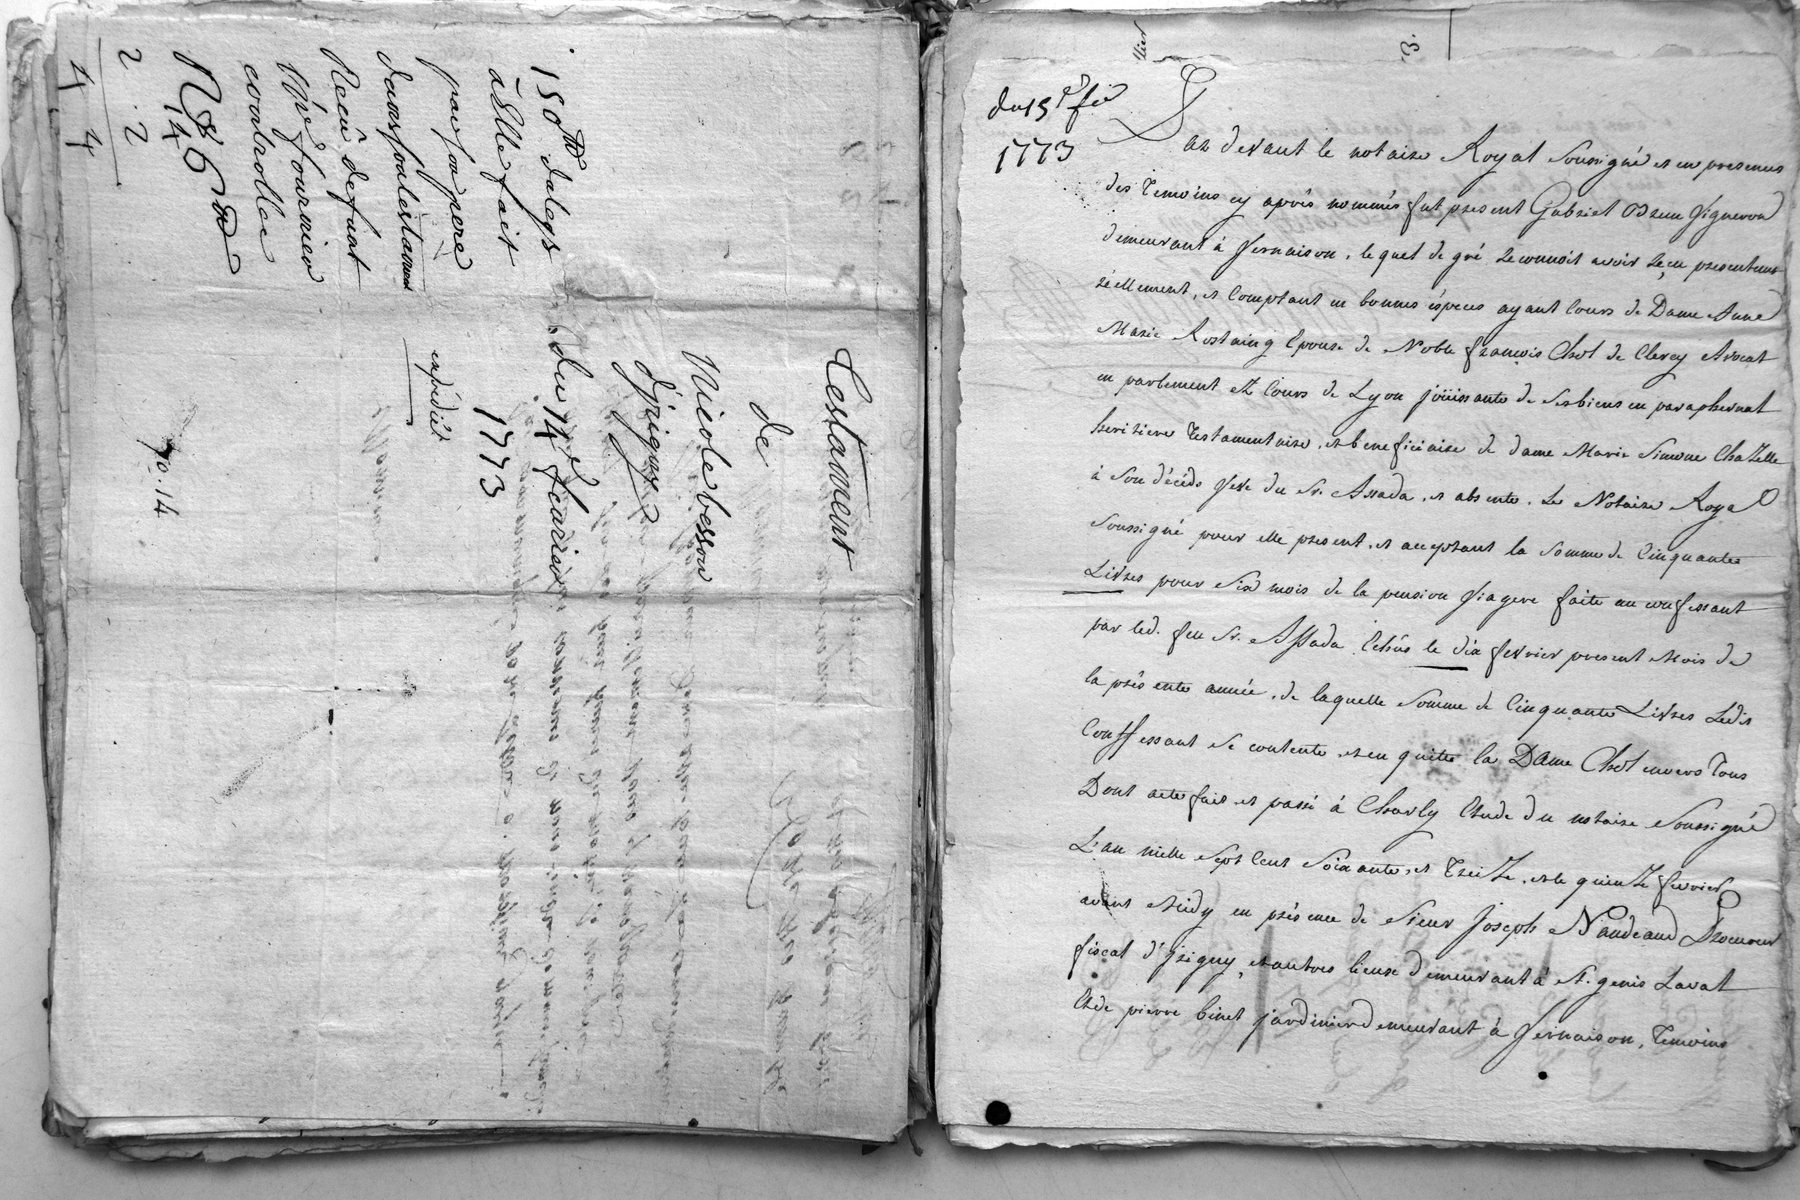 Testament
de
Nicole besson
d'jrigny
du 14e fevrier
1773
expédié
150lt da legs
à Elle fait
par son pere
dans son testament
Recû defunt
Mre fournier
controlle
no. 14
2 . 2
4 4
du 15e fer
1773
Par devant le notaire Royal soussigné et en presence
des temoins cy aprés nommés fut present Gabriel Brun Vigneron
demeurant à Vernaison, lequel de gré reconnoit avoir reçu presentement
réellement, et Comptant en bonnes éspeces ayant Cours de Dame Anne
Marie Rostaing Epouse de Noble françois Chol de Clercy Avocat
en parlement et Cours de Lyon joüissante de ses biens en paraphernal
heritiere Testamentaire, et beneficiaire de dame Marie Simone Chazelle
à son décéds veve du Sr. Assada, et absente. Le Notaire Royal
soussigné pour elle present, et acceptant la somme de Cinquante
Livres pour Six mois de la pension viagere faite au confessant
par led. feu Sr. Assada Echûs le dix fevrier present Mois de
la présente année, de laquelle somme de Cinquante Livres Ledit
Conffessant se contente, et en quitte la Dame Chol envers tous
Dont acte fait et passé à Charly Etude du notaire soussigné
L'an mille sept Cent soixante, et treize, et le quinze fevrier
avant midy en présence de sieur Joseph Naudeaud Procureur
fiscal d'Jrigny, et autres lieux demeurant à St. genis Laval
Et de pierre binet jardinier demeurant à Vernaison, temoins